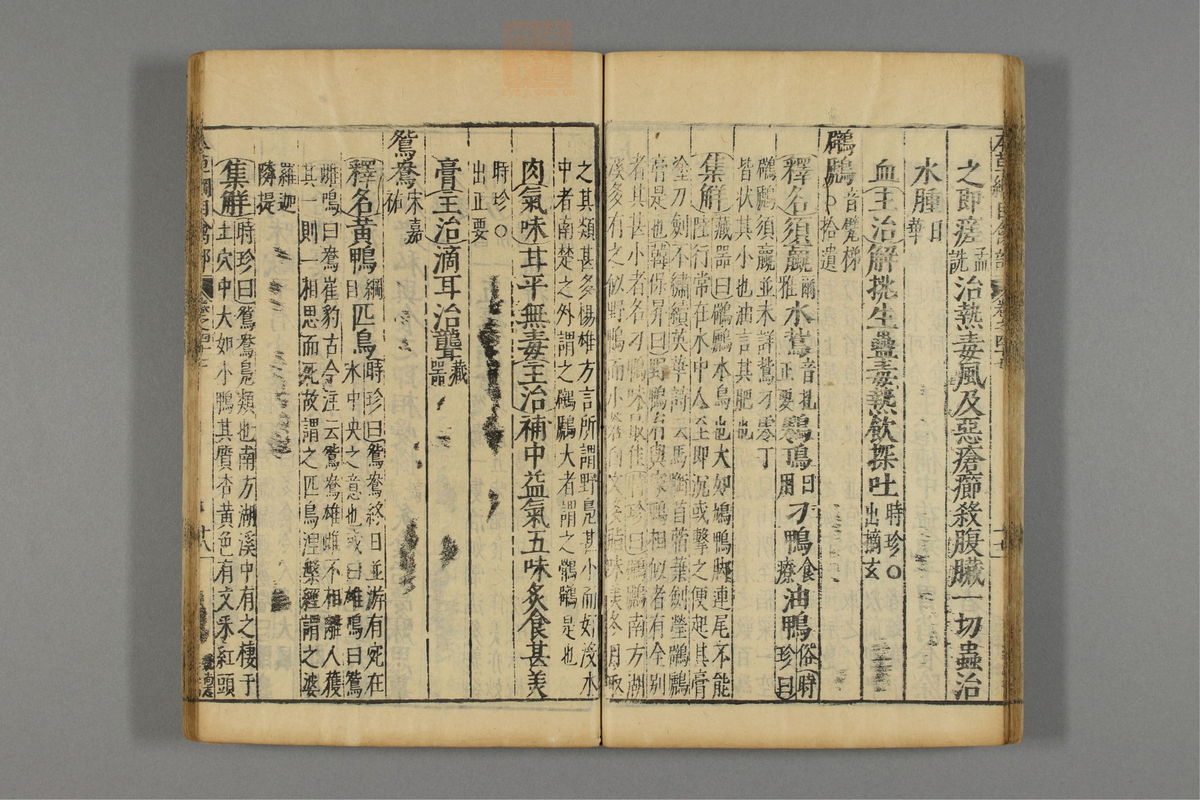 之即瘥孟詵治熱毒風及惡瘡癤殺腹臟一切蟲治
水腫日華
血主治解挑生蠱毒熱飲探吐時珍○出摘玄
鸊鷉音甓梯○拾遺
釋名須鸁爾雅水𪆟音札正要鷿鴠日用刁鴨食療油鴨俗時珍曰
鸊鷉須鸁並未詳𪆟刁零丁
皆狀其小也油言其肥也
集解藏器曰鸊鷉水鳥也大如鳩鴨脚連尾不能
陸行常在水中人至即沉或擊之便起其膏
塗刀劍不繡續英華詩云馬銜苜蓿葉劍瑩鸊鷉
膏是也韓保昇曰野鴨有與家鴨相似者有全別
者其甚小者名刁鴨味最佳時珍曰鸊鷉南方湖
溪多有之似野鴨而小
之其類甚多揚雄方言所謂野鳧甚小而好沒水
中者南楚之外謂之鸊鷉大者謂之鶻鷉是也
肉氣味甘平無毒主治補中益氣五味炙食甚美
時珍○出正要
膏主治滴耳治聾藏器
鴛鴦宋嘉祐
釋名黃鴨綱目匹鳥時珍曰鴛鴦終日並游有宛在
水中央之意也或曰雄鳴曰鴛
雌鳴曰鴦崔豹古今注云鴛鴦雄雌不相離人獲
其一則一相思而死故謂之匹鳥涅槃經謂之婆
羅迦
隣提
集解時珍曰鴛鴦鳧類也南方湖溪中有之棲于
土穴中大如小鴨其質杏黃色有文采紅頭